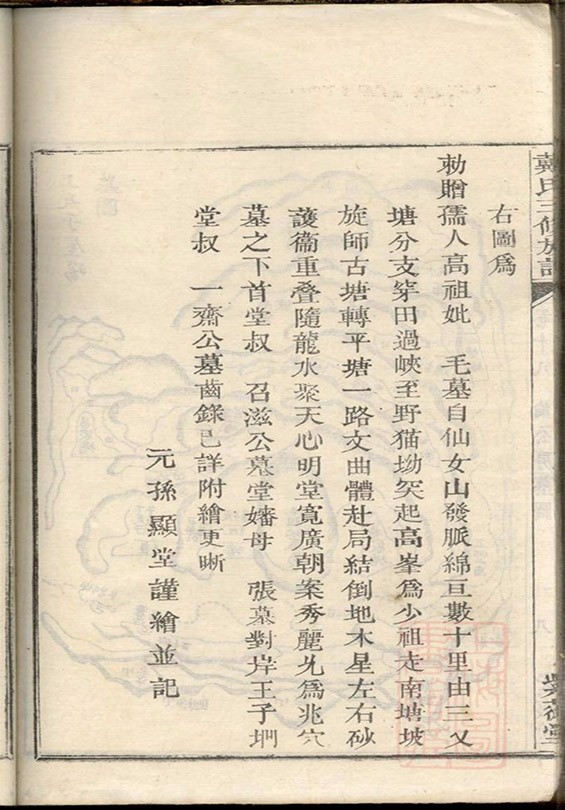 戴氏三修族譜
右圖爲
勅贈孺人高祖妣　毛墓自仙女山發脈綿亘數十里由三叉
塘分支穿田過峽至野猫坳突起高峯爲少祖走南塘坡
旋師古塘轉平塘一路文曲體赴局結倒地木星左右砂
護衞重叠隨龍水聚天心明堂寬廣朝案秀麗允爲兆穴
墓之下首堂叔　召滋公墓堂嬸母　張墓對岸王子垇
堂叔　一齋公墓齒錄已詳附繪更晰
元孫顯堂謹繪並記
紫薇堂